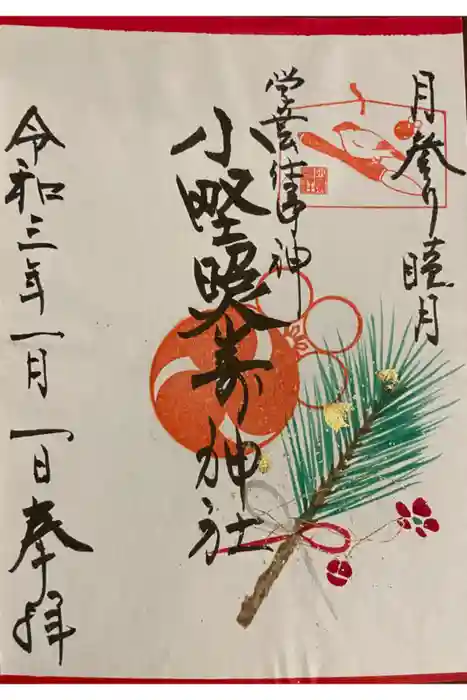 月参り睦月
学芸仕事神
小野照寿神社
令和三年一月一日奉拝